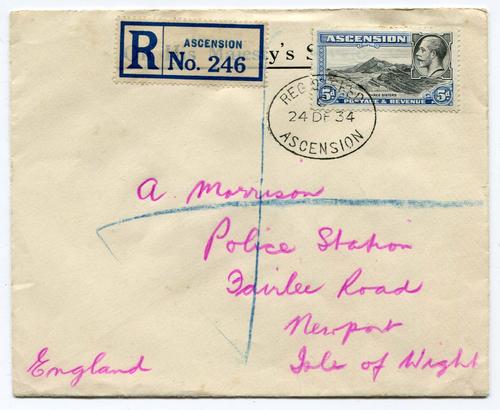 R ASCENSION
No. 246
y's S
ASCENSION
THREE SISTERS
5d POSTAGE & REVENUE 5d
REGISTERED
24 DE 34
ASCENSION
A. Morrison
Police Station
Fairlee Road
Newport
England Isle of Wight